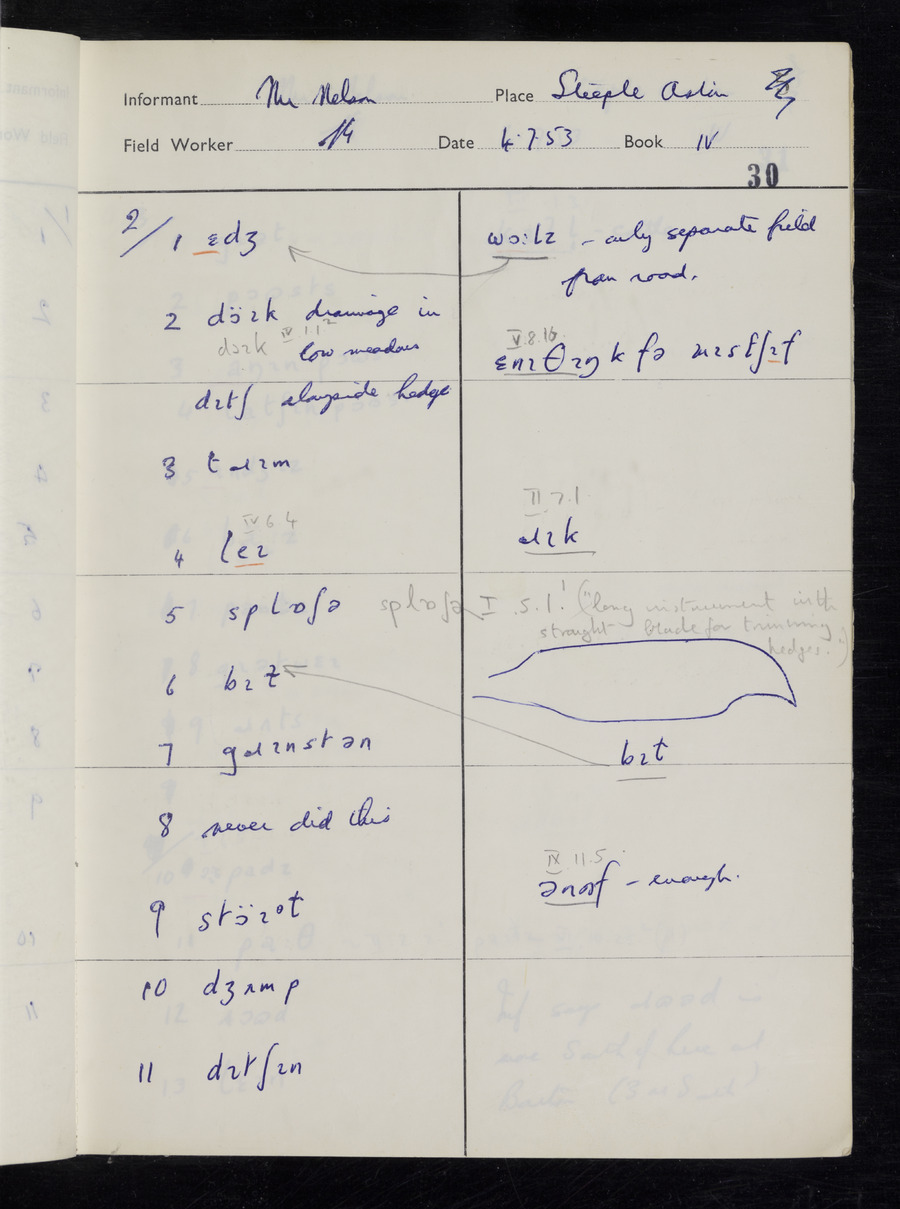 Informant Mr Nelson Place Steeple Aston
Field Worker Date 4.7.53 Book IV
30
2/ 1 ɛdʒ
wɔ:lz - only separate field
from road.
2 dɔ̈ɪk drainage in
dɔɪk IV 1.1² low meadows
V.8.16.
ɛnɪθɪŋk fə
dɪtʃ alongside hedge
3 tɑɪm
II 7.1
ɑɪk
IV 6 4
4 leɪ
5 splɒʃə splɒʃə I.5.1! ("long instrument with
straight blade for trimming
hedges.")
6 bɪt
bɪt
7 gɹɑɪnstən
8 never did this
IX 11.5.
ənʌf - enough.
9
10 dʒʌmp
11 dɪtʃɪn